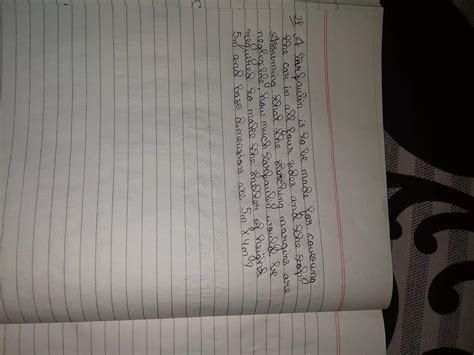 A tarpaulin is to be made for covering
the car in all four sides and the top.
Assuming that the stitching margins are
negligible, how much tarpaulin would be
required to make the shelter of height
5m and base dimensions are 5m x 4m?